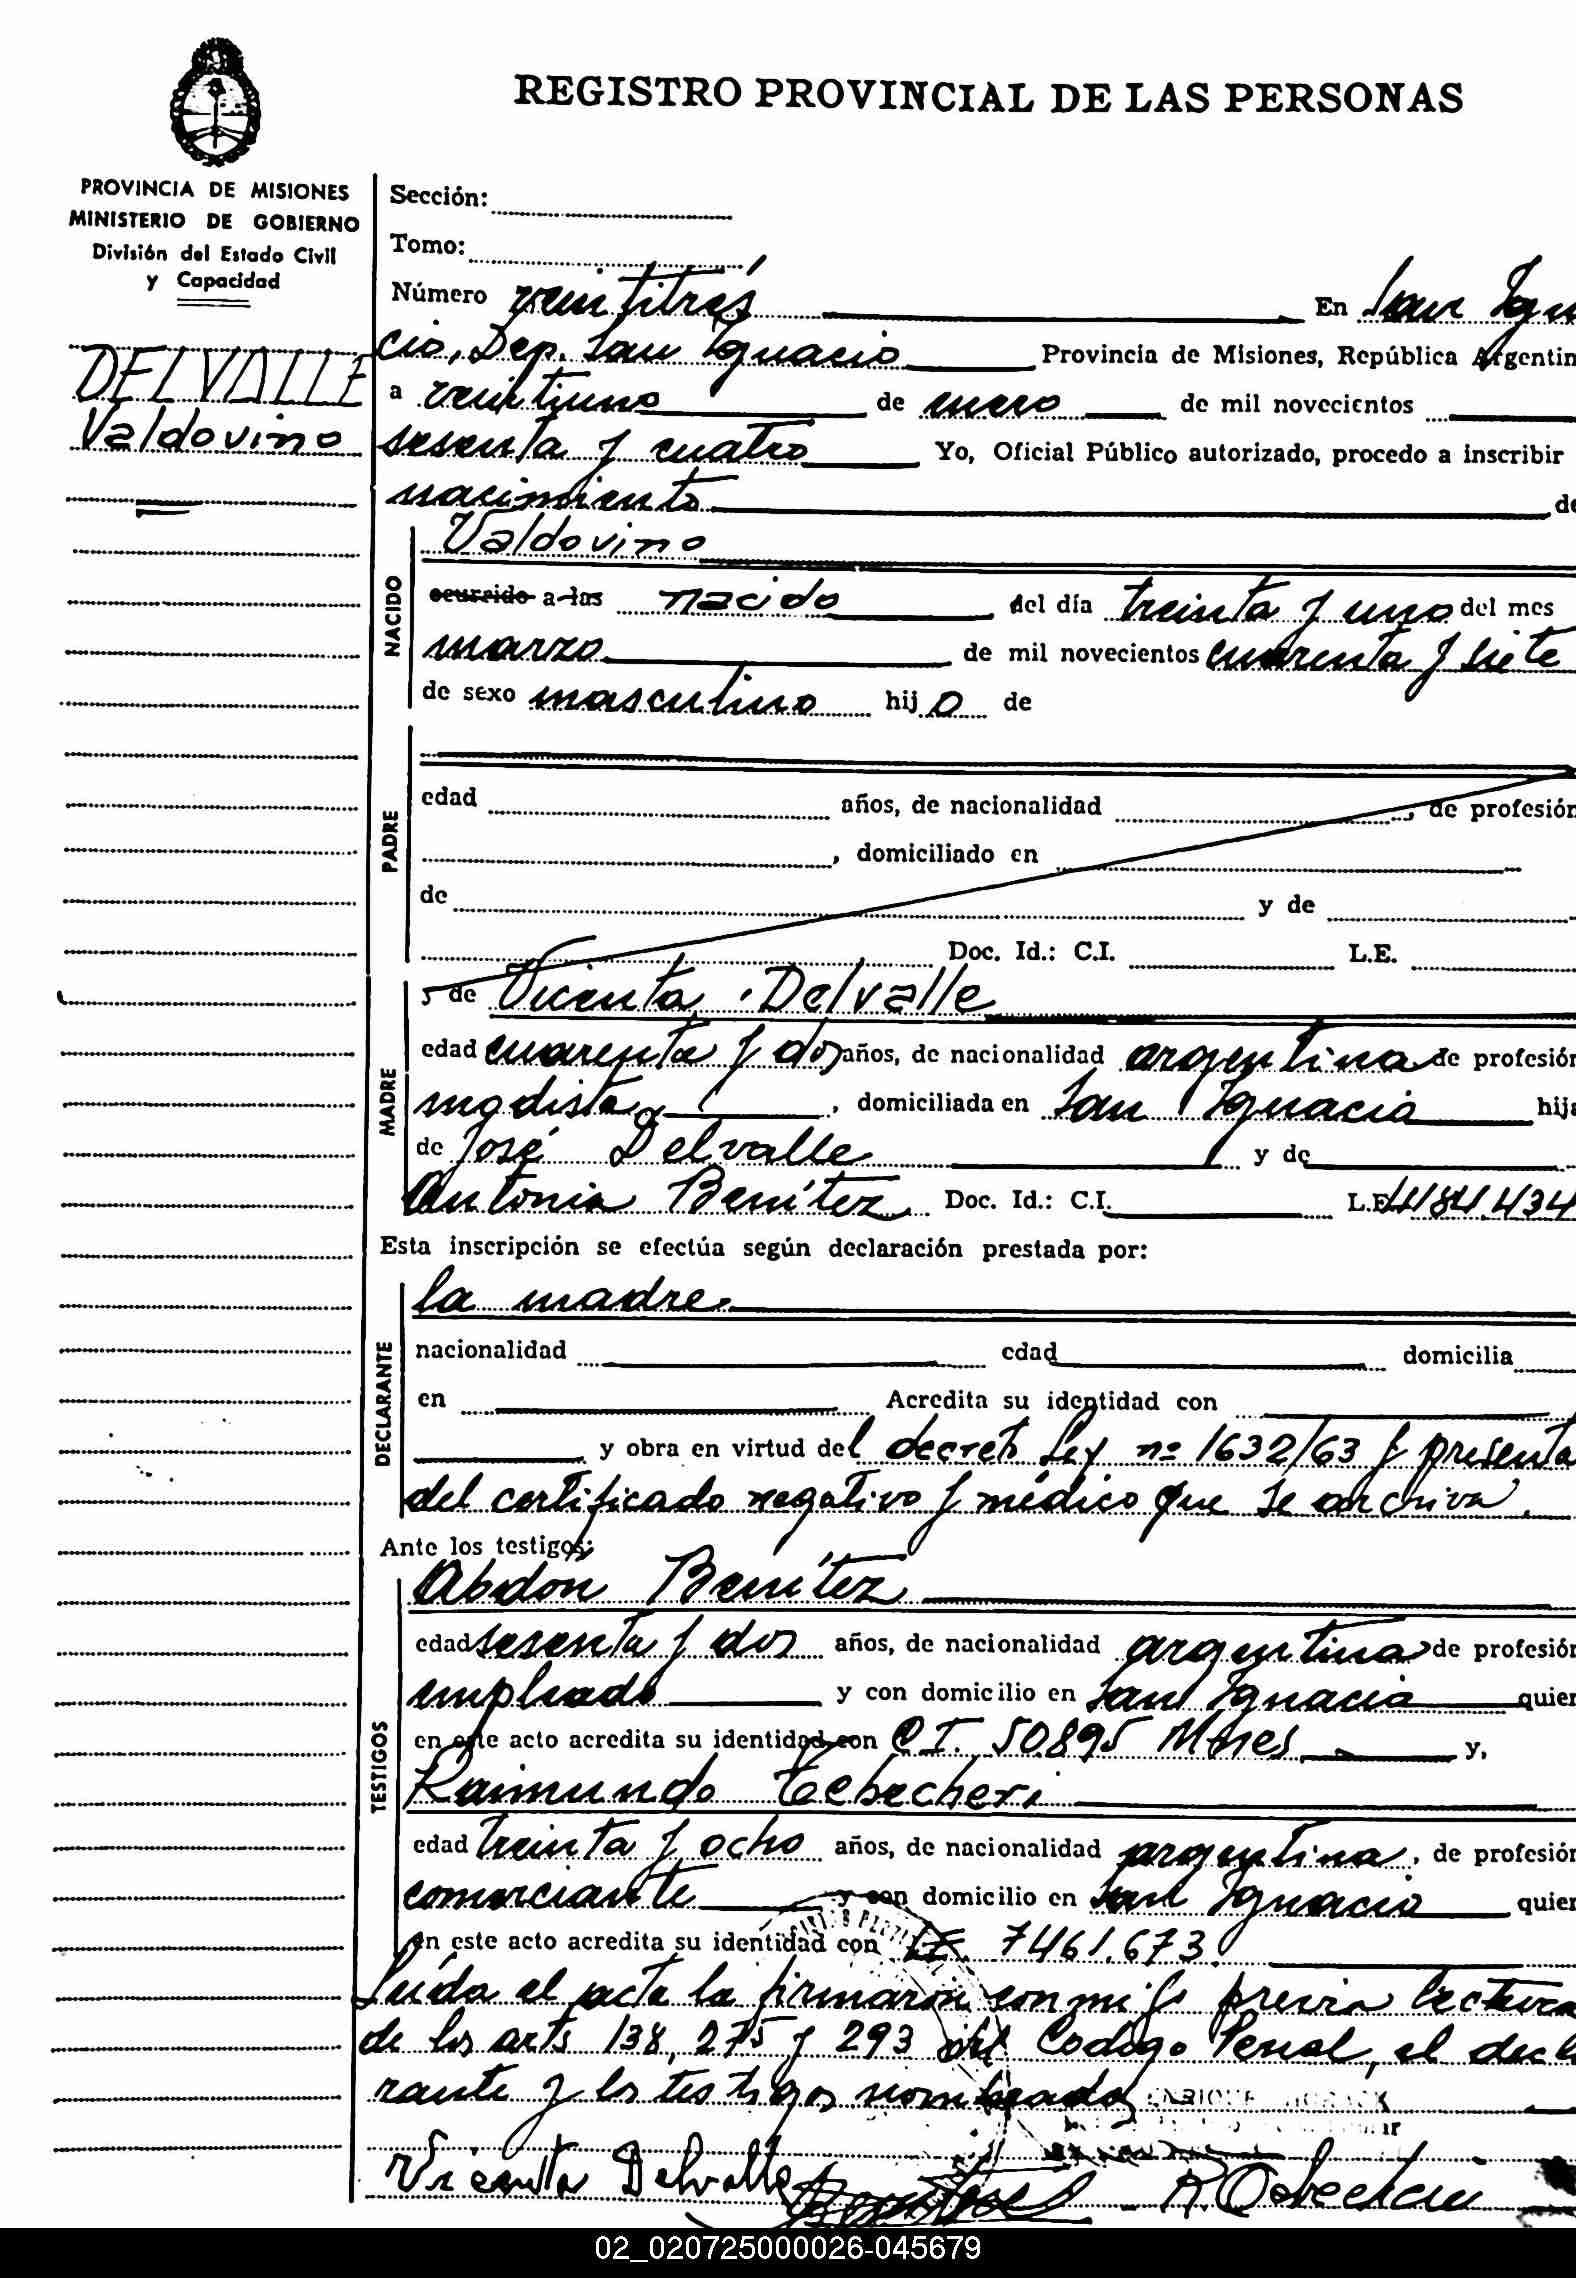 REGISTRO PROVINCIAL DE LAS PERSONAS
PROVINCIA DE MISIONES
MINISTERIO DE GOBIERNO
División del Estado Civil
y Capacidad
DELVALLE
Valdovino
Sección:
Tomo:
Número veintitrés En San Igna
cio, Dep. San Ignacio Provincia de Misiones, República Argentin
a veintiuno de enero de mil novecientos
sesenta y cuatro Yo, Oficial Público autorizado, procedo a inscribir
nacimiento de
NACIDO
Valdovino
ocurrido a las nacido del día treinta y uno del mes
marzo de mil novecientos cuarenta y siete
de sexo masculino hijo de
PADRE
edad años, de nacionalidad , de profesión
, domiciliado en
de y de
Doc. Id.: C.I. L.E.
MADRE
y de Vicenta Delvalle
edad cuarenta y dos años, de nacionalidad argentina de profesión
modista , domiciliada en San Ignacio hija
de José Delvalle y de
Antonia Benítez Doc. Id.: C.I. L.E. 4484.434
Esta inscripción se efectúa según declaración prestada por:
DECLARANTE
la madre
nacionalidad edad domicilia
en Acredita su identidad con
y obra en virtud del decreto Ley nº 1632/63 y presenta
del certificado negativo y médico que se archiva.
Ante los testigos:
TESTIGOS
Abdón Benítez
edad sesenta y dos años, de nacionalidad argentina de profesión
empleado y con domicilio en San Ignacio quien
en este acto acredita su identidad con C.I. 50895 Mnes y,
Raimundo Tebecheri
edad treinta y ocho años, de nacionalidad argentina, de profesión
comerciante y con domicilio en San Ignacio quien
en este acto acredita su identidad con L.E. 7461.673
Leída el acta la firmaron conmigo previa lectura
de los arts 138, 275 y 293 del Codigo Penal, el decla
rante y los testigos nombrados
ENRIQUE
Vicenta Delvalle
02_020725000026-045679